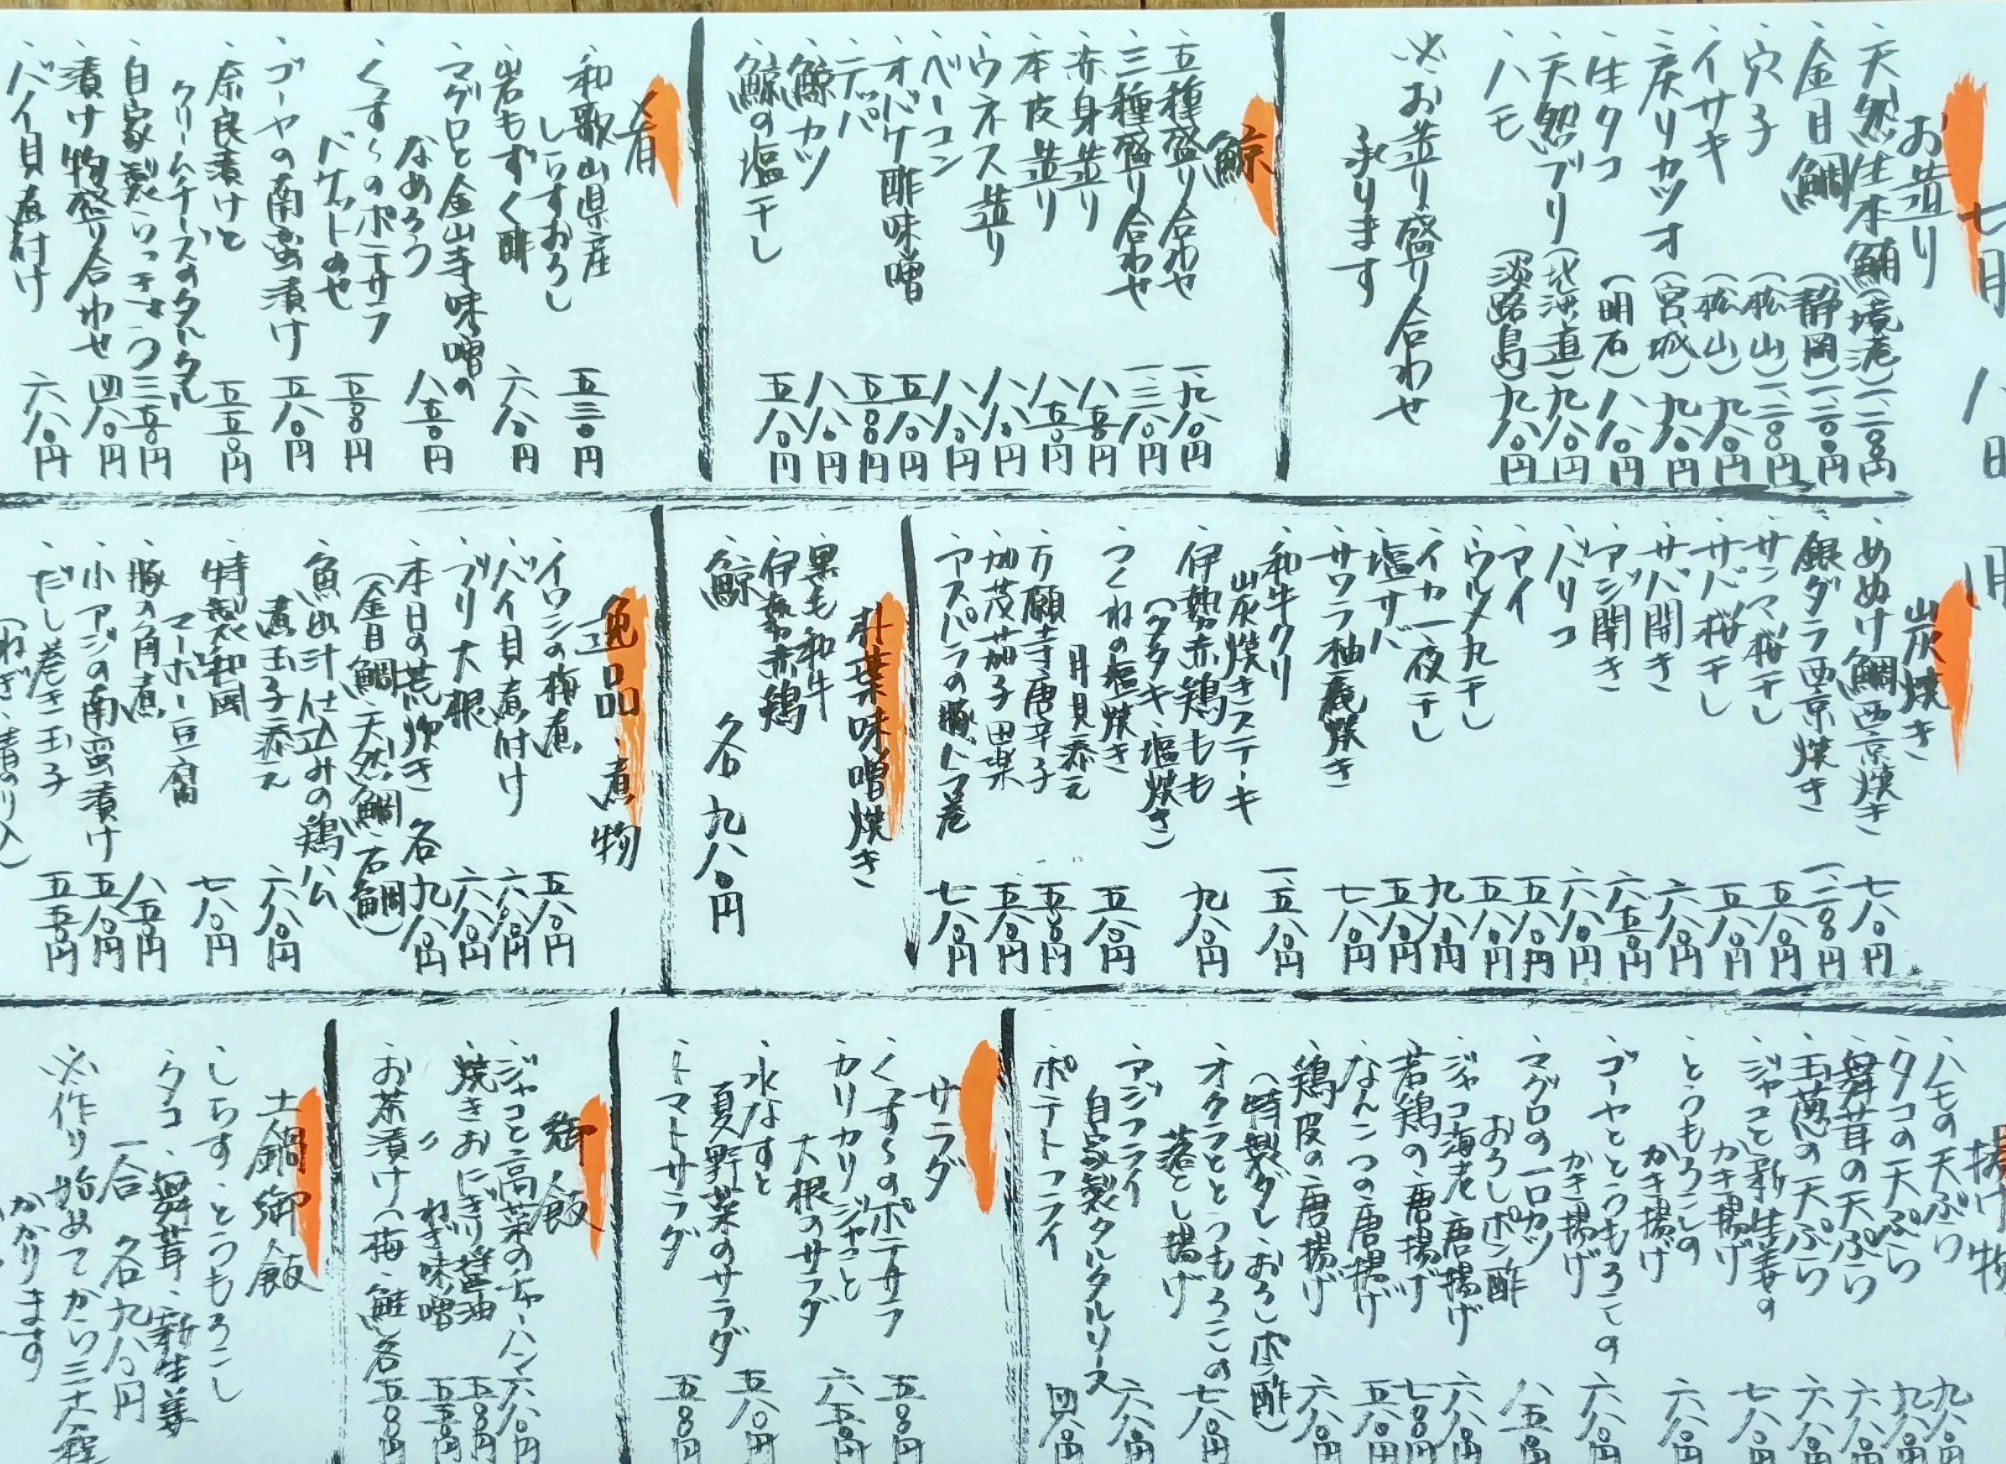 七月八日
お造り
、天然生本鮪(境港)一、二〇〇円
、金目鯛(静岡)一、二〇〇円
、穴子(松山)一、二〇〇円
、イサキ(松山)九八〇円
、戻りカツオ(宮城)九八〇円
、生タコ(明石)八八〇円
、天然ブリ(北海道)九八〇円
、ハモ(淡路島)九八〇円
※お造り盛り合わせ
承ります
鯨
、五種盛り合わせ 一、九八〇円
、三種盛り合わせ 一、三八〇円
、赤身造り 八五〇円
、本皮造り 八五〇円
、ウネス造り 八八〇円
、ベーコン 八八〇円
、オバケ酢味噌 五八〇円
、テッパ 五〇〇円
、鯨カツ 八八〇円
、鯨の塩干し 五八〇円
肴
、和歌山県産
しらすおろし 五三〇円
、岩もずく酢 六八〇円
、マグロと金山寺味噌の
なめろう 八五〇円
、くずしのポテサラ
バゲットのせ 五五〇円
、ゴーヤの南蛮漬け 五八〇円
、奈良漬けと
クリームチーズのタルタル 五五〇円
、自家製らっきょう 三五〇円
、漬け物盛り合わせ 四八〇円
、バイ貝煮付け 六八〇円
炭焼き
、めぬけ鯛西京焼き 七八〇円
、銀ダラ西京焼き 一、二八〇円
、サンマ桜干し 五八〇円
、サバ桜干し 五八〇円
、サバ開き 六八〇円
、アジ開き 六五〇円
、バリコ 六八〇円
、アイ 五八〇円
、ウルメ丸干し 五八〇円
、イカ一夜干し 九八〇円
、塩サバ 五八〇円
、サワラ柚庵焼き 七八〇円
、和牛クリ
炭焼きステーキ 一、五八〇円
、伊勢赤鶏もも
(タタキ・塩焼き) 九八〇円
、つくねの塩焼き
月見添え 五八〇円
、万願寺唐辛子 五五〇円
、加茂茄子田楽 五五〇円
、アスパラの豚バラ巻 七八〇円
朴葉味噌焼き
、黒毛和牛
、伊勢赤鶏
、鯨
各九八〇円
逸品、煮物
、イワシの梅煮 五八〇円
、バイ貝煮付け 六八〇円
、ブリ大根 六八〇円
、本日の荒炊き 各九八〇円
(金目鯛、天然鯛、石鯛)
、魚出汁仕込みの鶏ハム
煮玉子添え 六八〇円
、特製和風
マーボー豆腐 七八〇円
、豚の角煮 八五〇円
、小アジの南蛮漬け 五八〇円
、だし巻き玉子 五五〇円
(ねぎ・青のり入)
揚げ物
、ハモの天ぷら 九八〇円
、タコの天ぷら 九八〇円
、舞茸の天ぷら 六八〇円
、玉葱の天ぷら 六八〇円
、ジャコと新生姜の
かき揚げ 七八〇円
、とうもろこしの
かき揚げ 六八〇円
、ゴーヤととうもろこしの
かき揚げ 六八〇円
、マグロの一口カツ
おろしポン酢 八五〇円
、ジャコ海老唐揚げ 六八〇円
、若鶏の唐揚げ 七八〇円
、なんこつの唐揚げ 五八〇円
、鶏皮の唐揚げ 六八〇円
(特製ダレ・おろしポン酢)
、オクラととうもろこしの
落とし揚げ 七八〇円
、アジフライ
自家製タルタルソース 六八〇円
、ポテトフライ 四八〇円
サラダ
、くずしのポテサラ 五五〇円
、カリカリジャコと
大根のサラダ 六五〇円
、水なすと
夏野菜のサラダ 五八〇円
、トマトサラダ 五五〇円
御飯
、ジャコと高菜のチャーハン 六八〇円
、焼きおにぎり醤油 五五〇円
〃 ねぎ味噌 五五〇円
、お茶漬け(梅・鮭)各五五〇円
土鍋御飯
、しらす、とうもろこし
、タコ、舞茸、新生姜
一合 各九八〇円
※作り始めてから三十分程
かかります